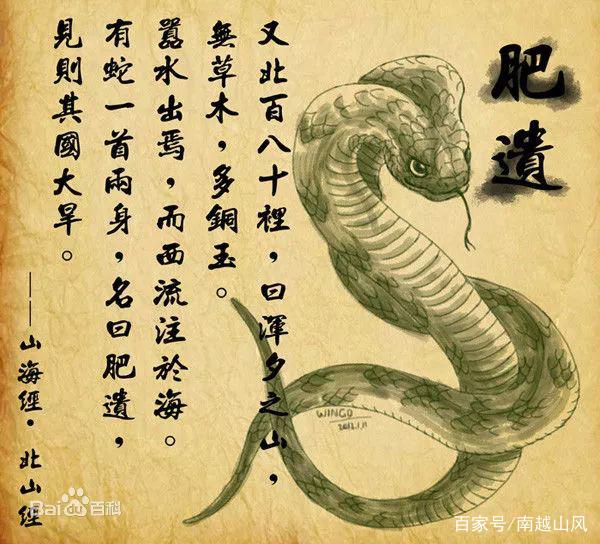 肥遺
又北百八十裡，曰渾夕之山，
無草木，多銅玉。
囂水出焉，而西流注於海。
有蛇一首兩身，名曰肥遺，
見則其國大旱。
——山海經·北山經
WINGO
2012.1.11
Bai百科
百家号/南越山风